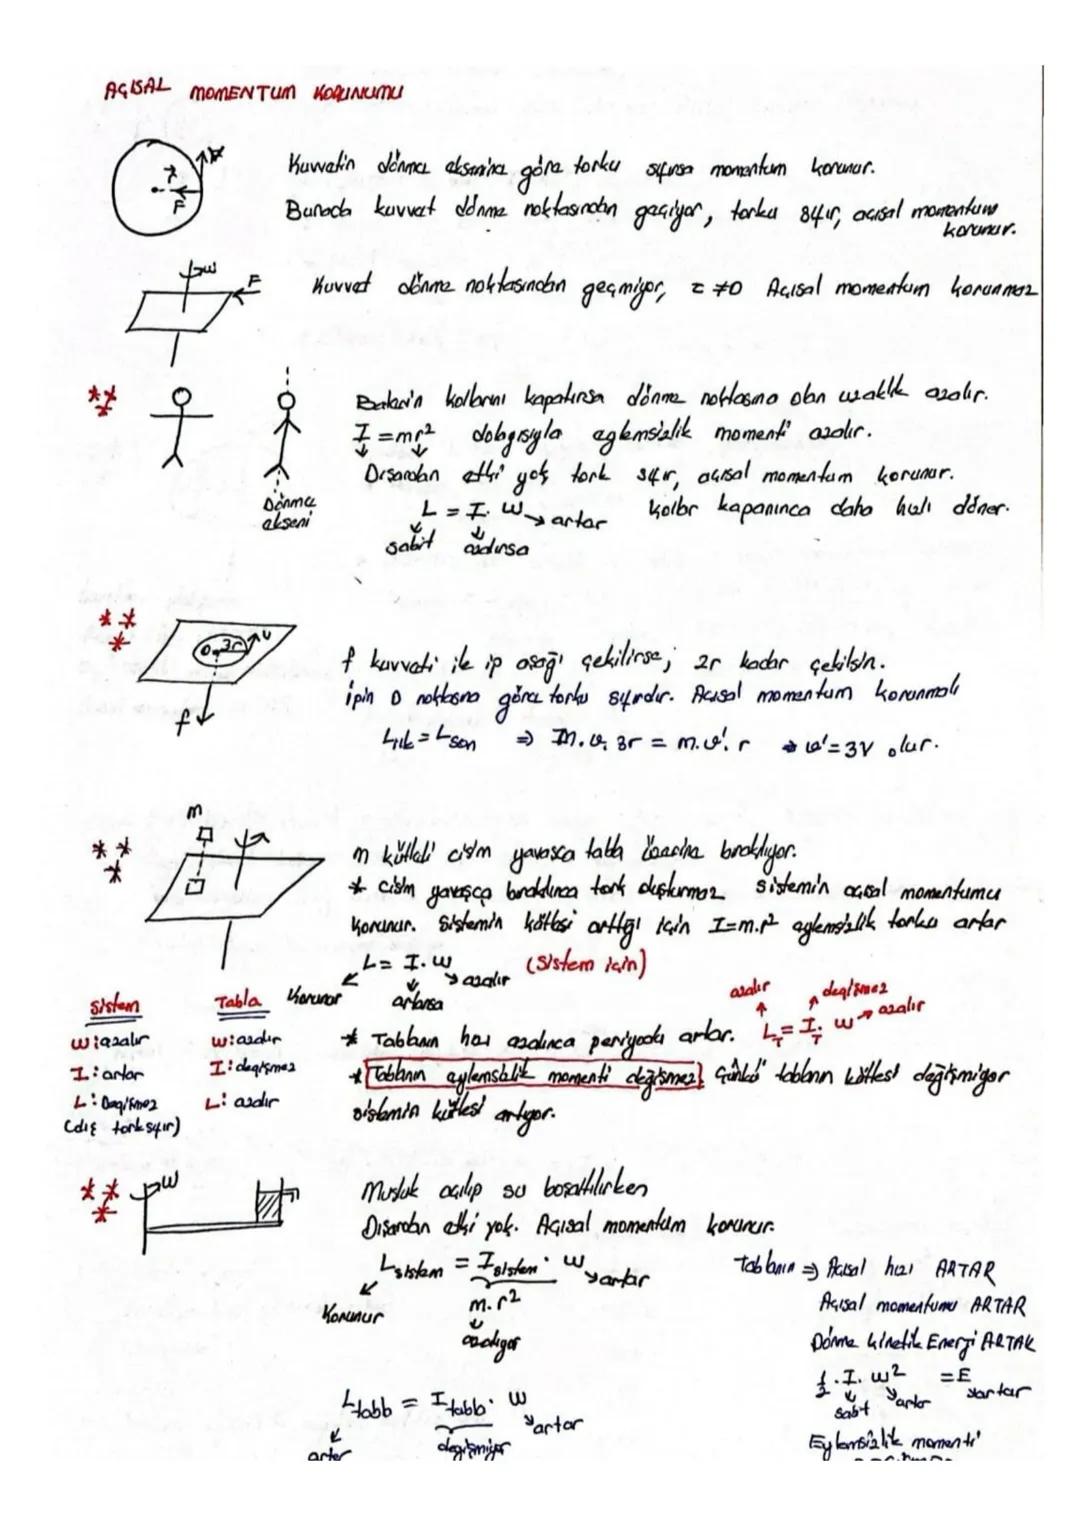 AÇISAL MOMENTUM KORUNUMU
Kuvvetin dönme eksenine göre torku sıfırsa momentum korunur.
Burada kuvvet dönme noktasından geçiyor, torku sıfır, açısal momentum korunur.
r
F
w
F
Kuvvet dönme noktasından geçmiyor, τ ≠0 Açısal momentum korunmaz
Balerin kollarını kapatırsa dönme noktasına olan uzaklık azalır.
I = mr² dolayısıyla eylemsizlik momenti azalır.
Dışarıdan etki yok tork sıfır, açısal momentum korunur.
L = I. w → artar kollar kapanınca daha hızlı döner.
sabit azalırsa
Dönme
ekseni
O 3r v
f
f kuvveti ile ip aşağı çekilirse; 2r kadar çekilsin.
ipin O noktasına göre torku sıfırdır. Açısal momentum korunmalı
Lilk = Lson ⇒ m.v. 3r = m.v'. r ⇒ v'=3V olur.
m
m kütleli cisim yavaşça tabla üzerine bırakılıyor.
* cisim yavaşça bırakılınca tork oluşturmaz sistemin açısal momentumu
korunur. Sistemin kütlesi arttığı için I=m.r² eylemsizlik torku artar
L= I. w → azalır (Sistem için)
Korunur artarsa
Sistem
w: azalır
I: artar
L: Değişmez
(dış tork sıfır)
Tabla
w: azalır
I: değişmez
L: azalır
azalır değişmez
* Tablanın hızı azalınca periyodu artar. L_T = I_T. w → azalır
* Tablanın eylemsizlik momenti değişmez. Çünkü tablanın kütlesi değişmiyor
sistemin kütlesi artıyor.
w
Musluk açılıp su boşaltılırken
Dışarıdan etki yok. Açısal momentum korunur.
Lsistem = Isistem . w → artar
Korunur m.r²
azalıyor
Ltabla = Itabla . w → artar
artar değişmiyor
tablanın ⇒ Açısal hızı ARTAR
Açısal momentumu ARTAR
Dönme kinetik Enerji ARTAR
1/2 .I. w² = E
sabit artar artar
Eylemsizlik momenti